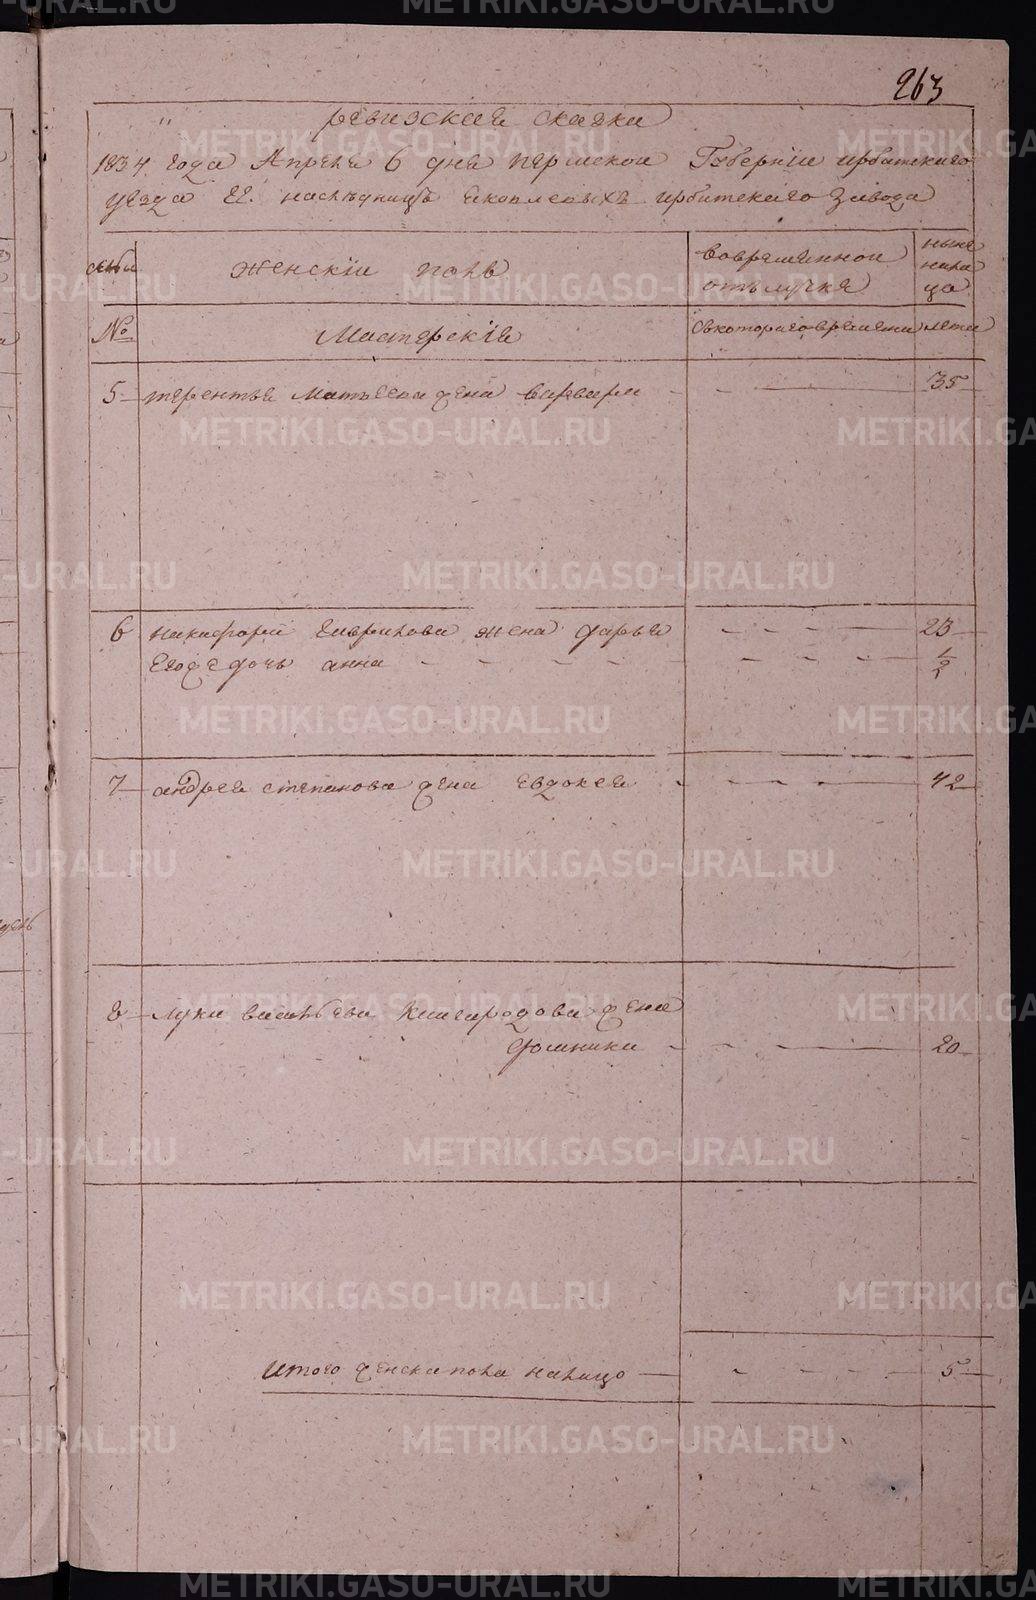 263
ревизская сказка
1834 года Апреля 6 дня пермской Губернии ирбитского
уезда ЕЕ. наследниц яковлевых ирбитского завода
женский пол
вовременной
отълучке
ныне
нали
цо
№
Мастерския
скоторого времени
лета
5 терентья Матвеева жена варвара 35
6 никифора Гаврилова жена дарья 23
Его же дочь анна 1/2
7 андрея степанова жена Евдокея 42
8 луки васильева жена
20
Итого женска пола налицо 5
METRIKI.GASO-URAL.RU